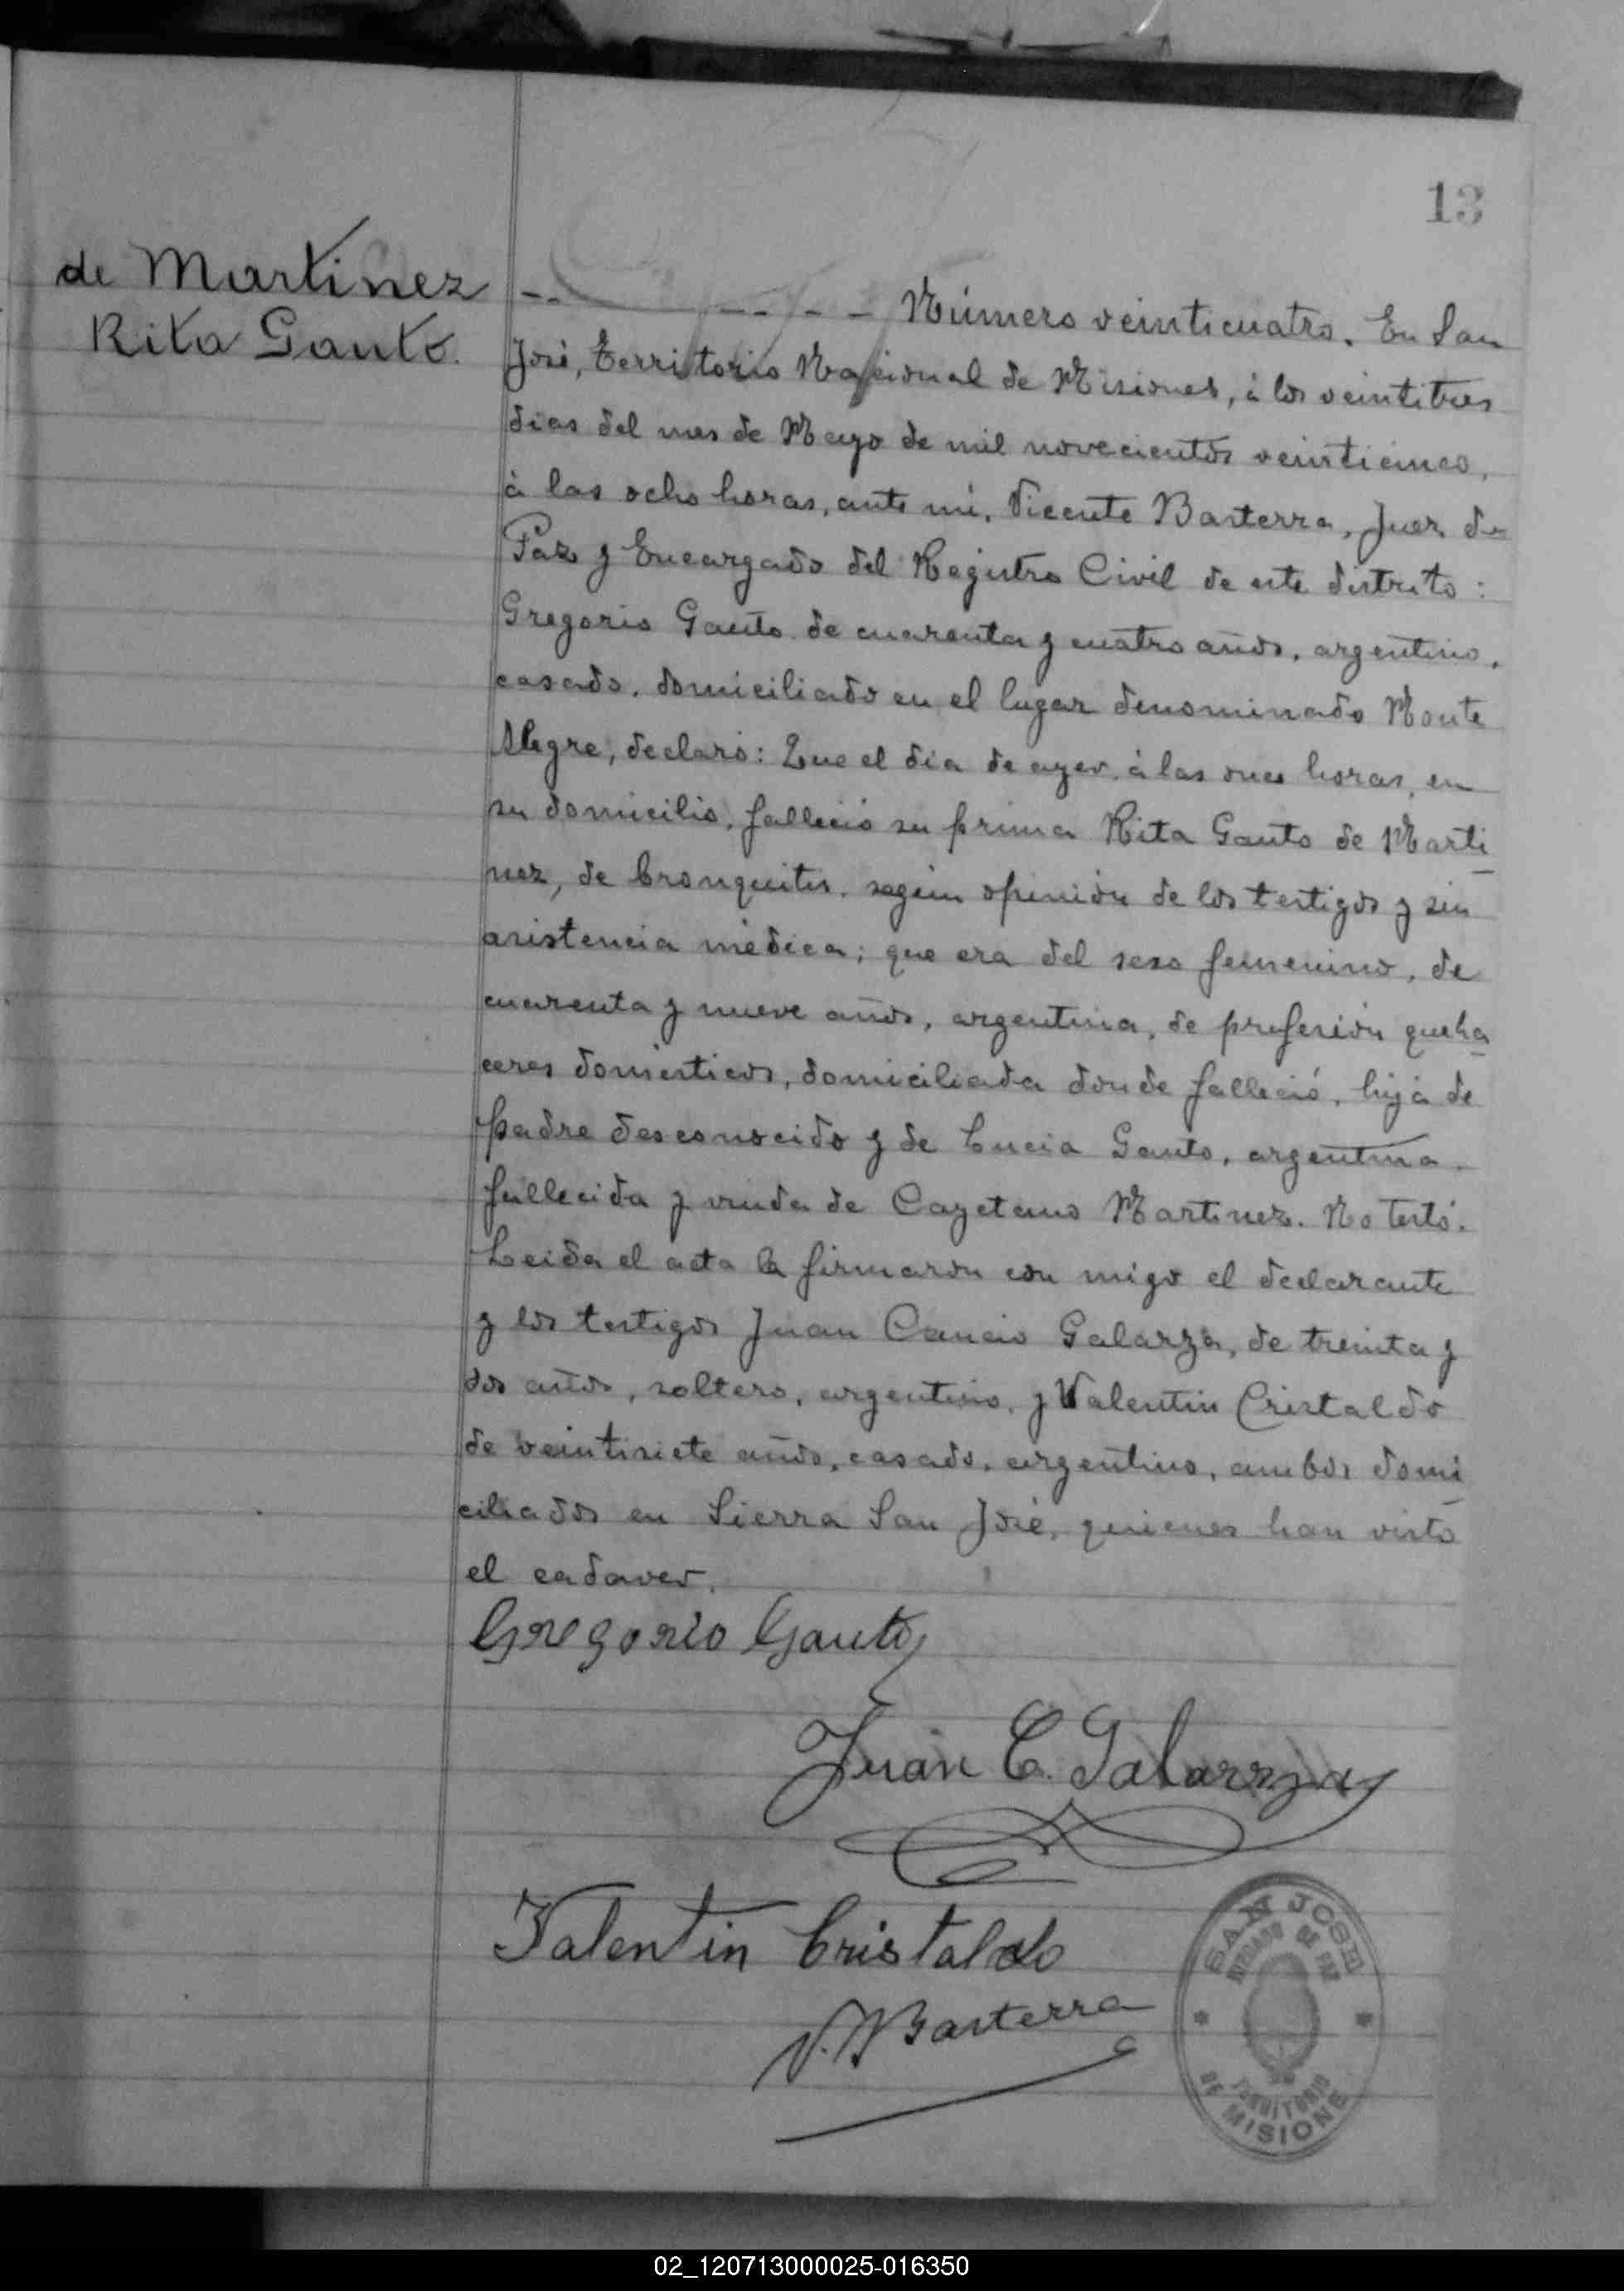 13
de Martinez
Rita Gauto.
Número veinticuatro. En San
José, Territorio Nacional de Misiones, á los veintitres
dias del mes de Mayo de mil novecientos veinticinco,
á las ocho horas, ante mi, Vicente Basterra, Juez de
Paz y Encargado del Registro Civil de este distrito:
Gregorio Gauto de cuarenta y cuatro años, argentino,
casado, domiciliado en el lugar denominado Monte
Alegre, declaró: Que el dia de ayer á las once horas, en
su domicilio, falleció su prima Rita Gauto de Marti
nez, de bronquitis, según opinión de los testigos y sin
asistencia médica; que era del sexo femenino, de
cuarenta y nueve años, argentina, de profesión queha
ceres domésticos, domiciliada donde falleció, hija de
padre desconocido y de Lucia Gauto, argentina,
fallecida y viuda de Cayetano Martinez. No testó.
Leida el acta la firmaron con migo el declarante
y los testigos Juan Cancio Galarza, de treinta y
dos años, soltero, argentino, y Valentin Cristaldo
de veintisiete años, casado, argentino, ambos domi
ciliados en Sierra San José, quienes han visto
el cadaver.
Gregorio Gauto
Juan C. Galarza
Valentin Cristaldo
V. Basterra
SAN JOSE
JUZGADO DE PAZ
TERRITORIO
DE MISIONES
02_120713000025-016350